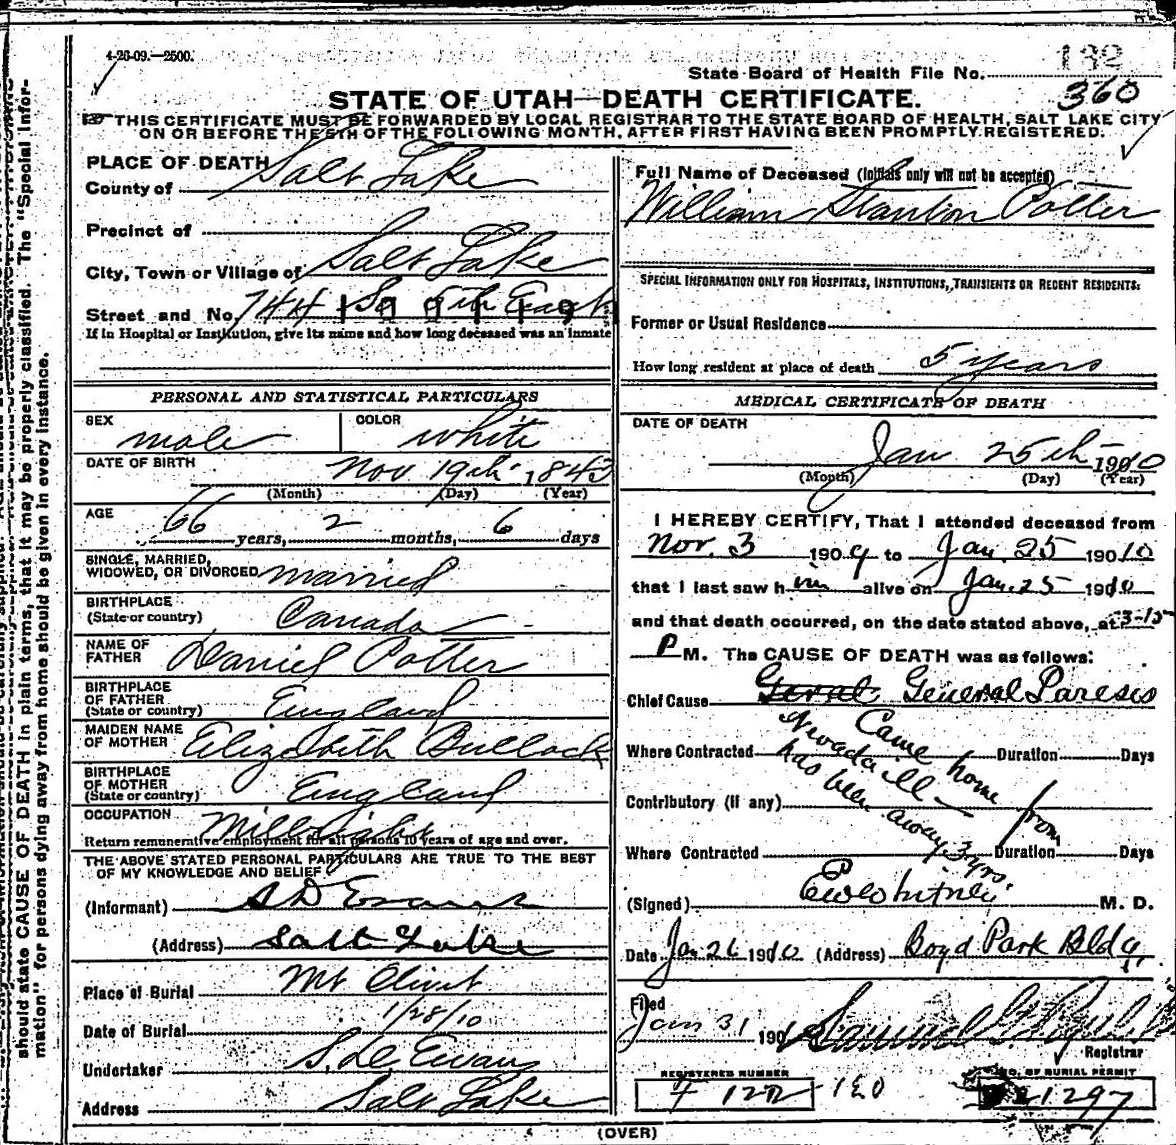 4-26-09.—2500.
132
State Board of Health File No.
360
STATE OF UTAH—DEATH CERTIFICATE.
THIS CERTIFICATE MUST BE FORWARDED BY LOCAL REGISTRAR TO THE STATE BOARD OF HEALTH, SALT LAKE CITY
ON OR BEFORE THE 5TH OF THE FOLLOWING MONTH, AFTER FIRST HAVING BEEN PROMPTLY REGISTERED.
PLACE OF DEATH
County of Salt Lake
Precinct of
City, Town or Village of Salt Lake
Street and No. 744 So 5th East
If in Hospital or Institution, give its name and how long deceased was an inmate
PERSONAL AND STATISTICAL PARTICULARS
SEX male COLOR white
DATE OF BIRTH Nov. 19th 1843
(Month) (Day) (Year)
AGE 66 years, 2 months, 6 days
SINGLE, MARRIED,
WIDOWED, OR DIVORCED married
BIRTHPLACE
(State or country) Canada
NAME OF
FATHER Daniel Potter
BIRTHPLACE
OF FATHER
(State or country) England
MAIDEN NAME
OF MOTHER Elizabeth Bullock
BIRTHPLACE
OF MOTHER
(State or country) England
OCCUPATION Millwright
Return remunerative employment for all persons 10 years of age and over.
THE ABOVE STATED PERSONAL PARTICULARS ARE TRUE TO THE BEST
OF MY KNOWLEDGE AND BELIEF
(Informant) S D Evans
(Address) Salt Lake
Place of Burial Mt Olivet
Date of Burial 1/28/10
Undertaker S. D. Evans
Address Salt Lake
Full Name of Deceased (Initials only will not be accepted)
William Stanton Potter
SPECIAL INFORMATION ONLY FOR HOSPITALS, INSTITUTIONS, TRANSIENTS OR RECENT RESIDENTS:
Former or Usual Residence
How long resident at place of death 5 years
MEDICAL CERTIFICATE OF DEATH
DATE OF DEATH
Jan 25th 1910
(Month) (Day) (Year)
I HEREBY CERTIFY, That I attended deceased from
Nov. 3 1909 to Jan 25 19010
that I last saw him alive on Jan. 25 1910
and that death occurred, on the date stated above, at 3-15
P M. The CAUSE OF DEATH was as follows:
Chief Cause General Paresis
Came home from
Nevada ill—
has been away 3 yrs.
Where Contracted Duration Days
Contributory (if any)
Where Contracted Duration Days
(Signed) EWWhitney M. D.
Date Jan 26 1910 (Address) Boyd Park Bldg
Filed
Jan 31 190
Registrar
REGISTERED NUMBER NO. OF BURIAL PERMIT
F 122 120 21297
(OVER)
should state CAUSE OF DEATH in plain terms, that it may be properly classified. The "Special Infor-
mation" for persons dying away from home should be given in every instance.